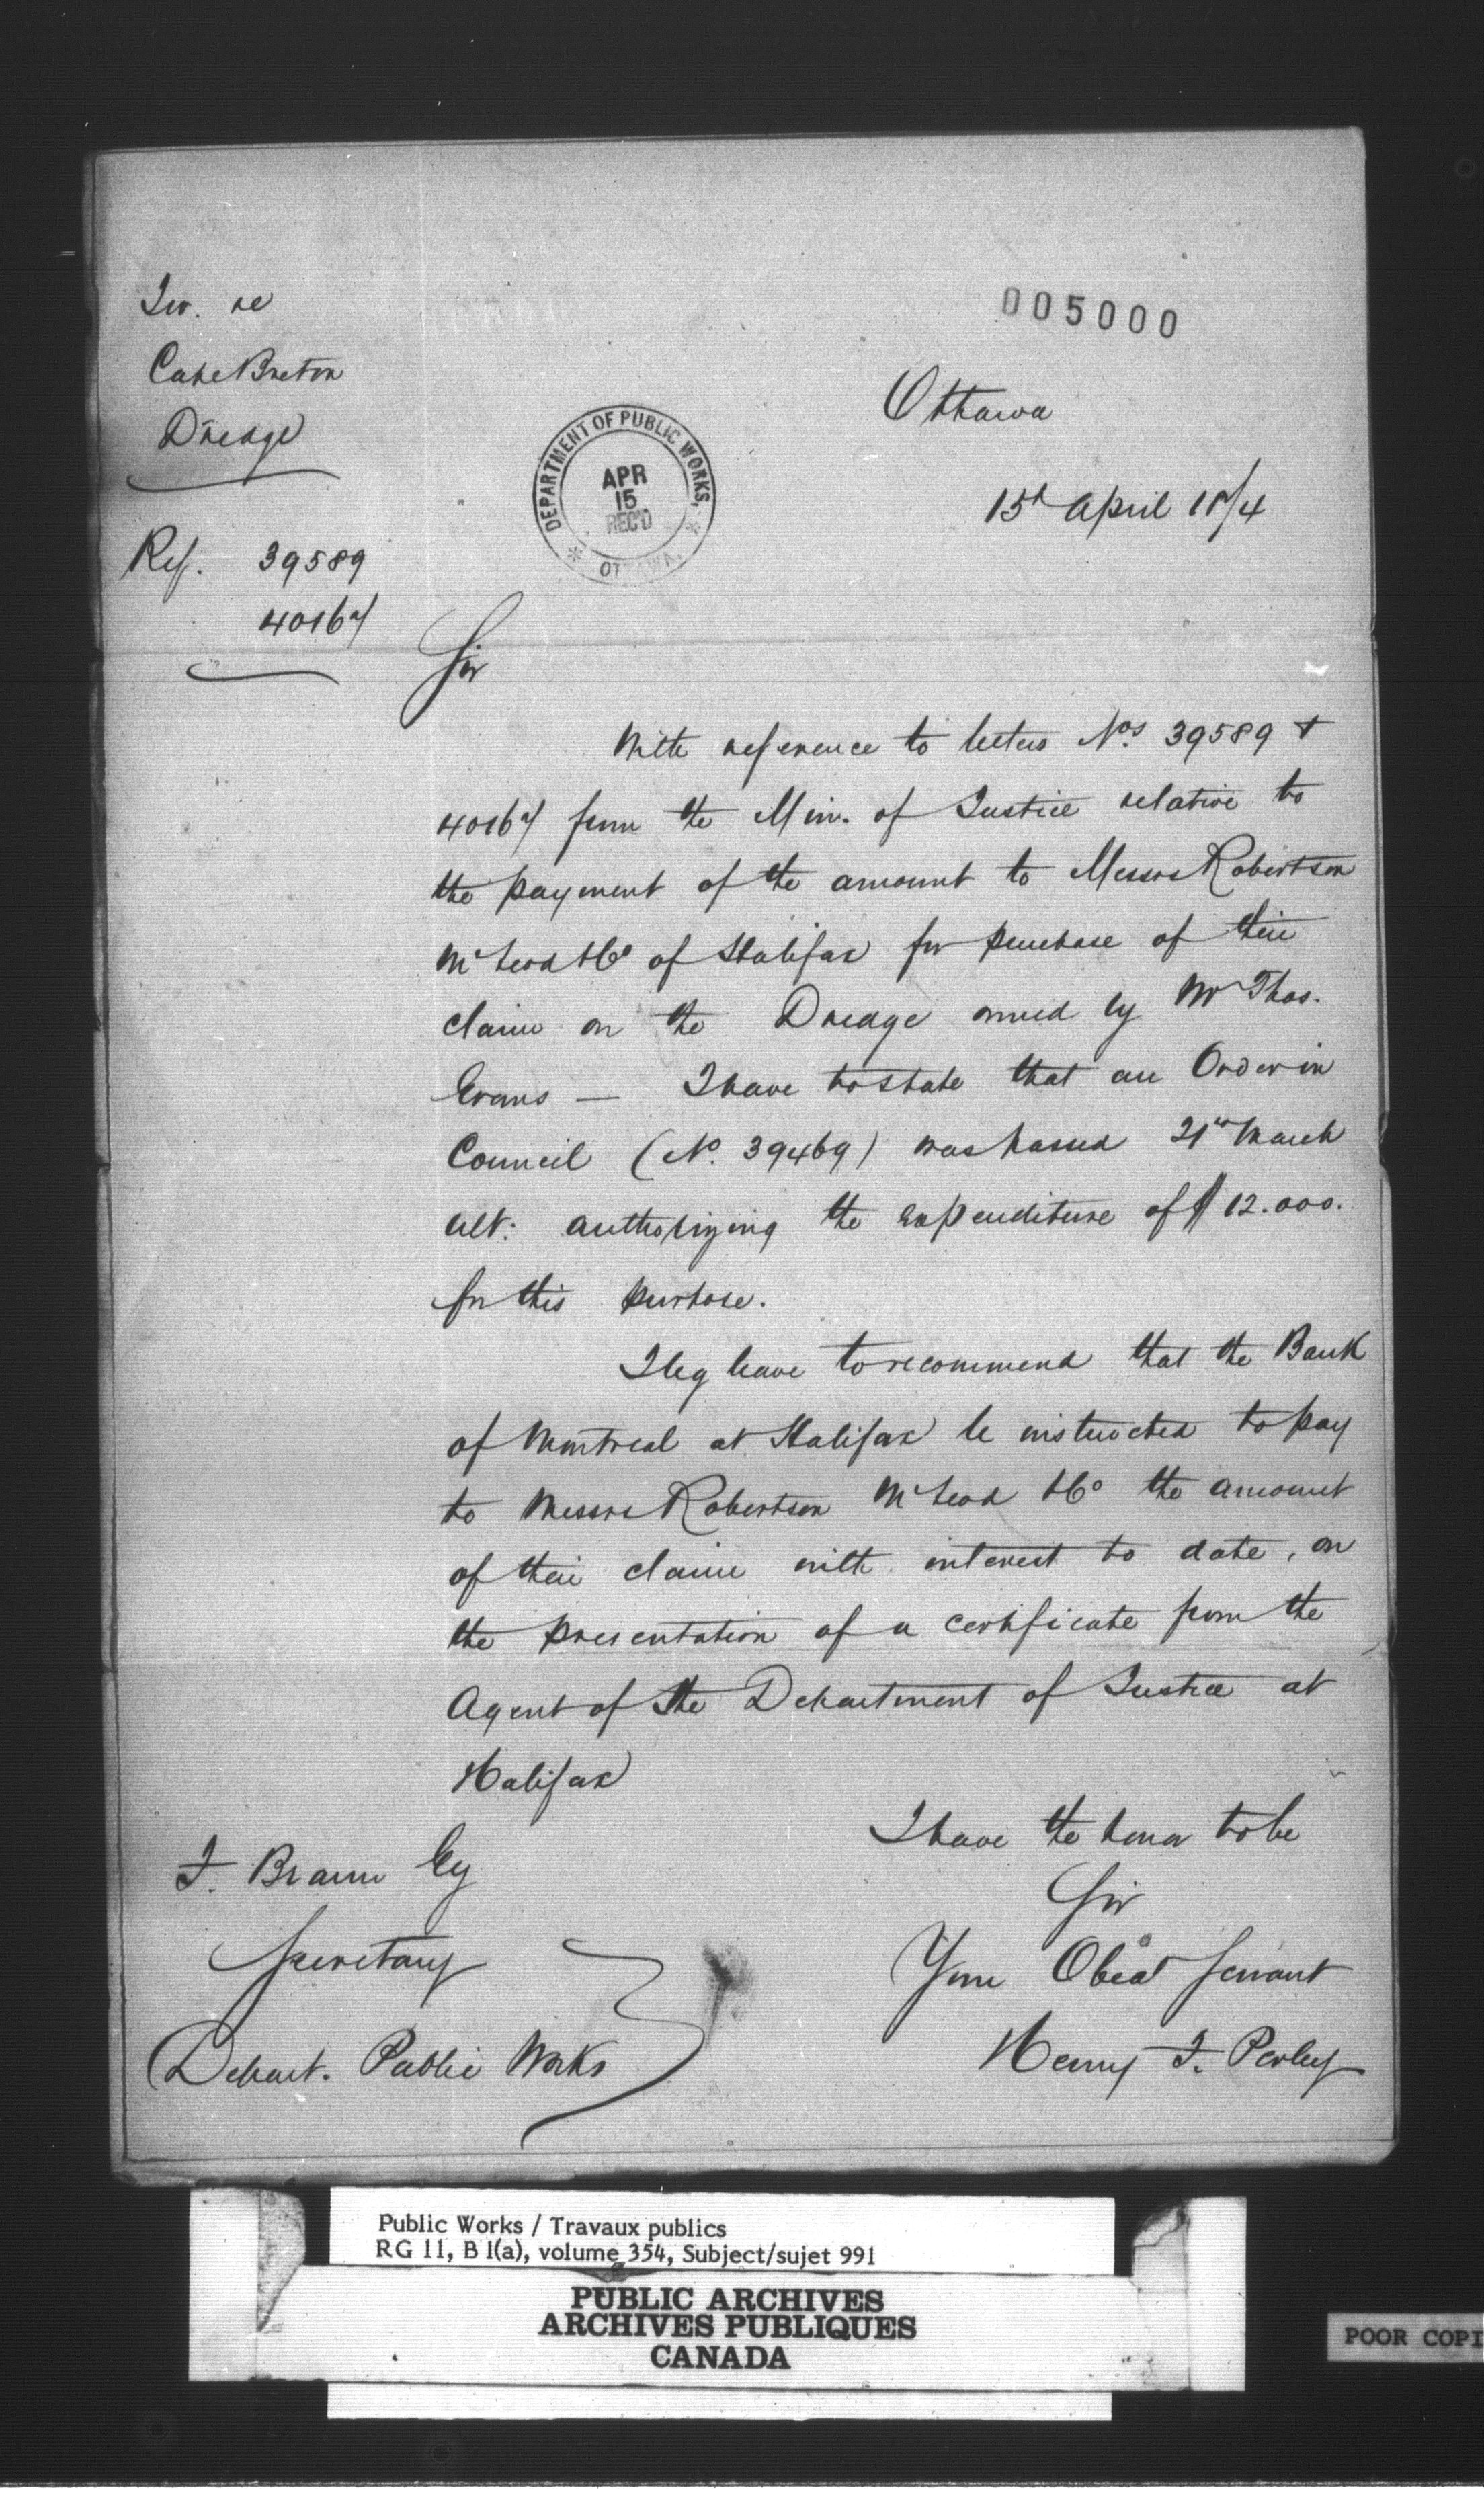 re
Cape Breton
Dredge
Ref. 39589
40167
005000
Ottawa
15th April 1874
DEPARTMENT OF PUBLIC WORKS,
APR
15
REC'D
OTTAWA.
Sir
With reference to letters Nos. 39589 &
40167 from the Min. of Justice relative to
the payment of the amount to Messrs Robertson
McLeod & Co of Halifax for purchase of their
claim on the Dredge owned by Mr Thos.
Evans — I have to state that an Order in
Council (No. 39469) was passed 21st March
ult: authorizing the expenditure of $12.000.
for this purpose.
I beg leave to recommend that the Bank
of Montreal at Halifax be instructed to pay
to Messrs Robertson McLeod & Co the amount
of their claim with interest to date, on
the presentation of a certificate from the
Agent of the Department of Justice at
Halifax
I have the honor to be
Sir
Your Obedt Servant
Henry F. Perley
F. Braun Esq
Secretary
Depart. Public Works
Public Works / Travaux publics
RG 11, B 1(a), volume 354, Subject/sujet 991
PUBLIC ARCHIVES
ARCHIVES PUBLIQUES
CANADA
POOR COPI